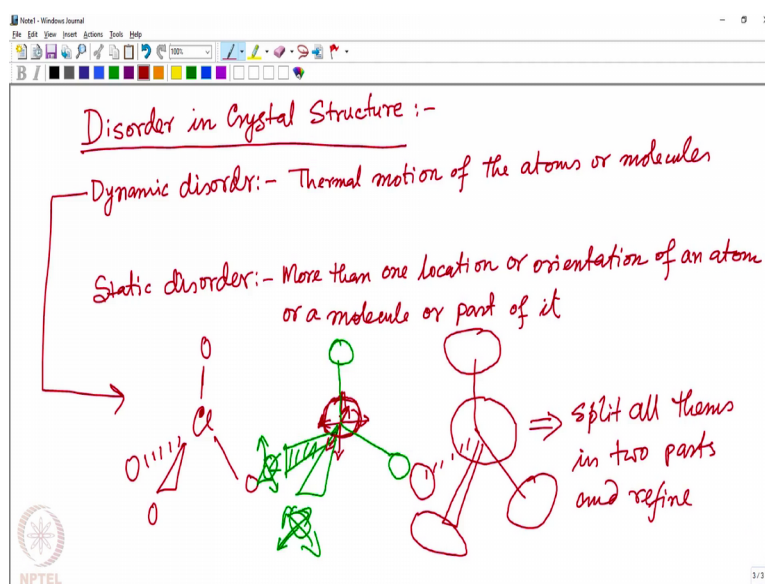 Note1 - Windows Journal
File Edit View Insert Actions Tools Help
100%
B I
Disorder in Crystal Structure :-
Dynamic disordr:- Thermal motion of the atoms or molecules
Static disorder:- More than one location or orientation of an atom
or a molecule or part of it
O
Cl
O O
O
⇒ split all thems
in two parts
and refine
NPTEL
3/3